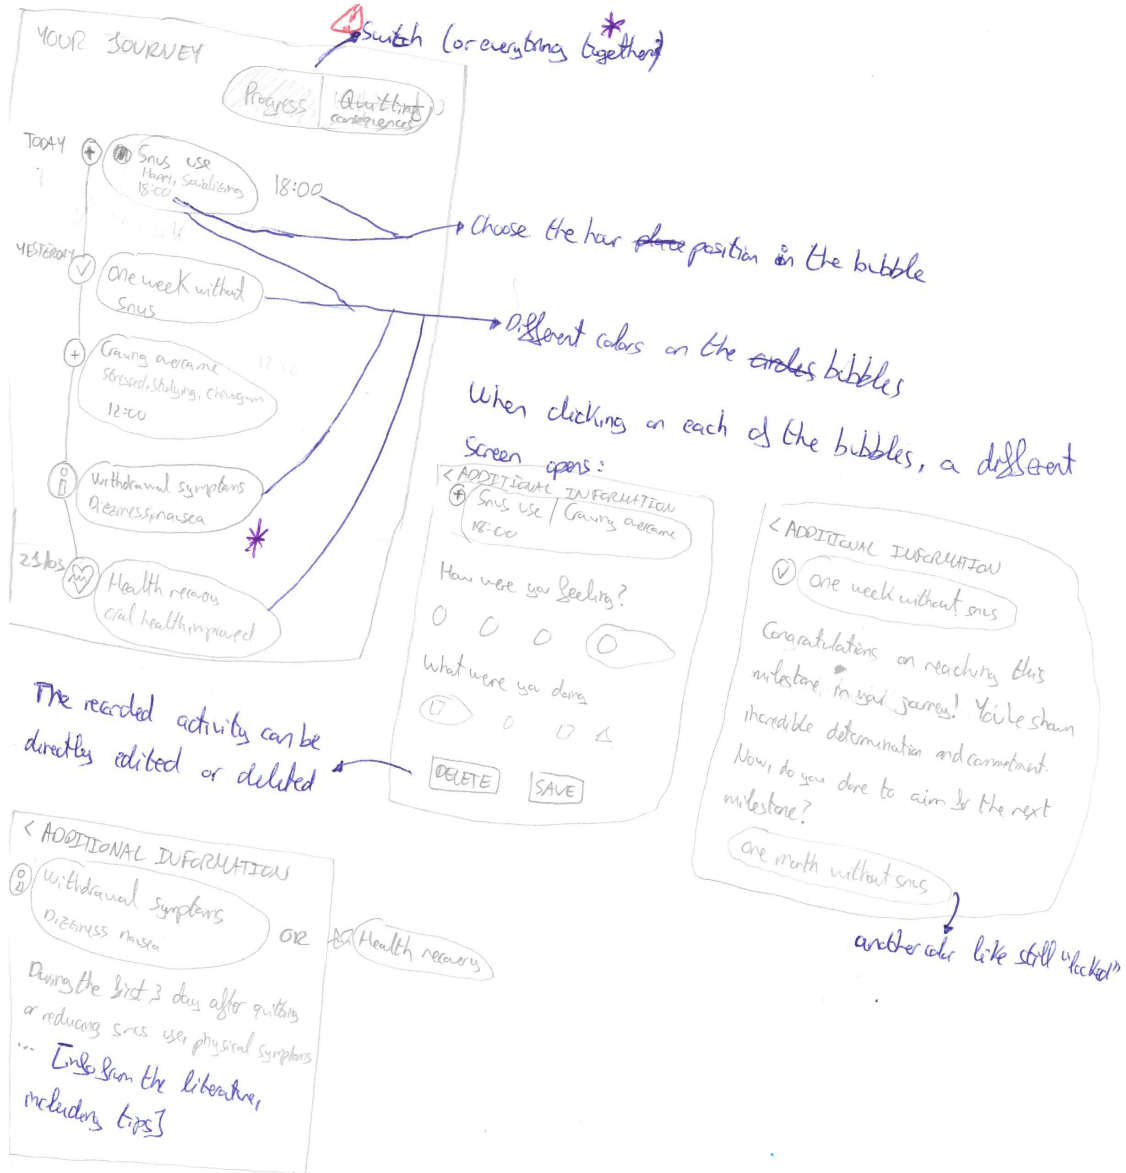 YOUR JOURNEY
Switch (or everything together?)
Progress | Quitting
consequences
TODAY
Snus use
Happy, Socializing
18:00
18:00
Choose the hour place position in the bubble
YESTERDAY
One week without
snus
Different colors on the circles bubbles
Craving overcame
stressed, studying,
12:00
12:12
When clicking on each of the bubbles, a different
screen opens:
Withdrawal symptoms
Dizziness, nausea
21/03
Health recovery
oral health improved
< ADDITIONAL INFORMATION
Snus use / Craving overcame
18:00
How were you feeling?
What were you doing
DELETE
SAVE
The recorded activity can be
directly edited or deleted
< ADDITIONAL INFORMATION
One week without snus
Congratulations on reaching this
milestone in your journey! You've shown
incredible determination and commitment.
Now, do you dare to aim for the next
milestone?
One month without snus
another color like still "locked"
< ADDITIONAL INFORMATION
Withdrawal symptoms
Dizziness nausea
OR
Health recovery
During the first 3 day after quitting
or reducing snus use, physical symptoms
... [info from the literature,
including tips]